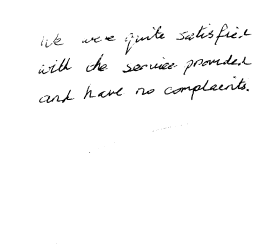 We were quite satisfied
with the service provided
and have no complaints.